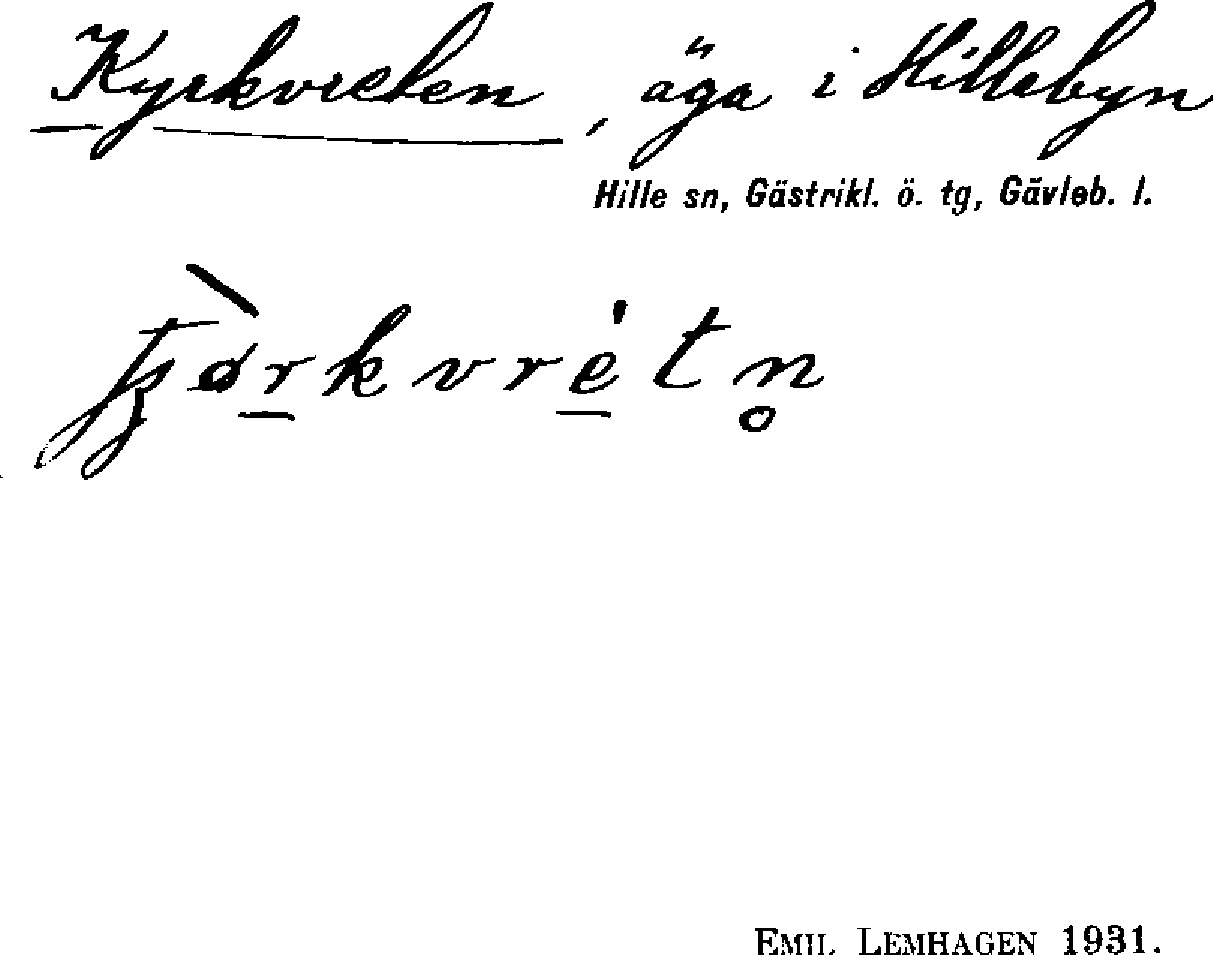 Kyrkvreten, äga i Hillebyn
Hille sn, Gästrikl. ö. tg, Gävleb. l.
EMIL LEMHAGEN 1931.